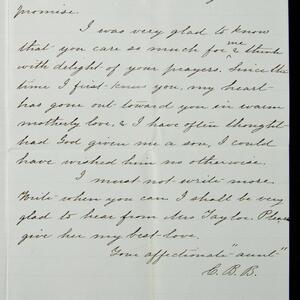 promise.
I was very glad to know
that you care so much for me & think
with delight of your prayers. Since the
time I first knew you, my heart
has gone out toward you in warm
motherly love, & I have often thought
had God given me a son, I could
have wished him no otherwise.
I must not write more.
Write when you can I shall be very
glad to hear from Mrs Taylor. Please
give her my best love.
Your affectionate "aunt"
C. B. B.